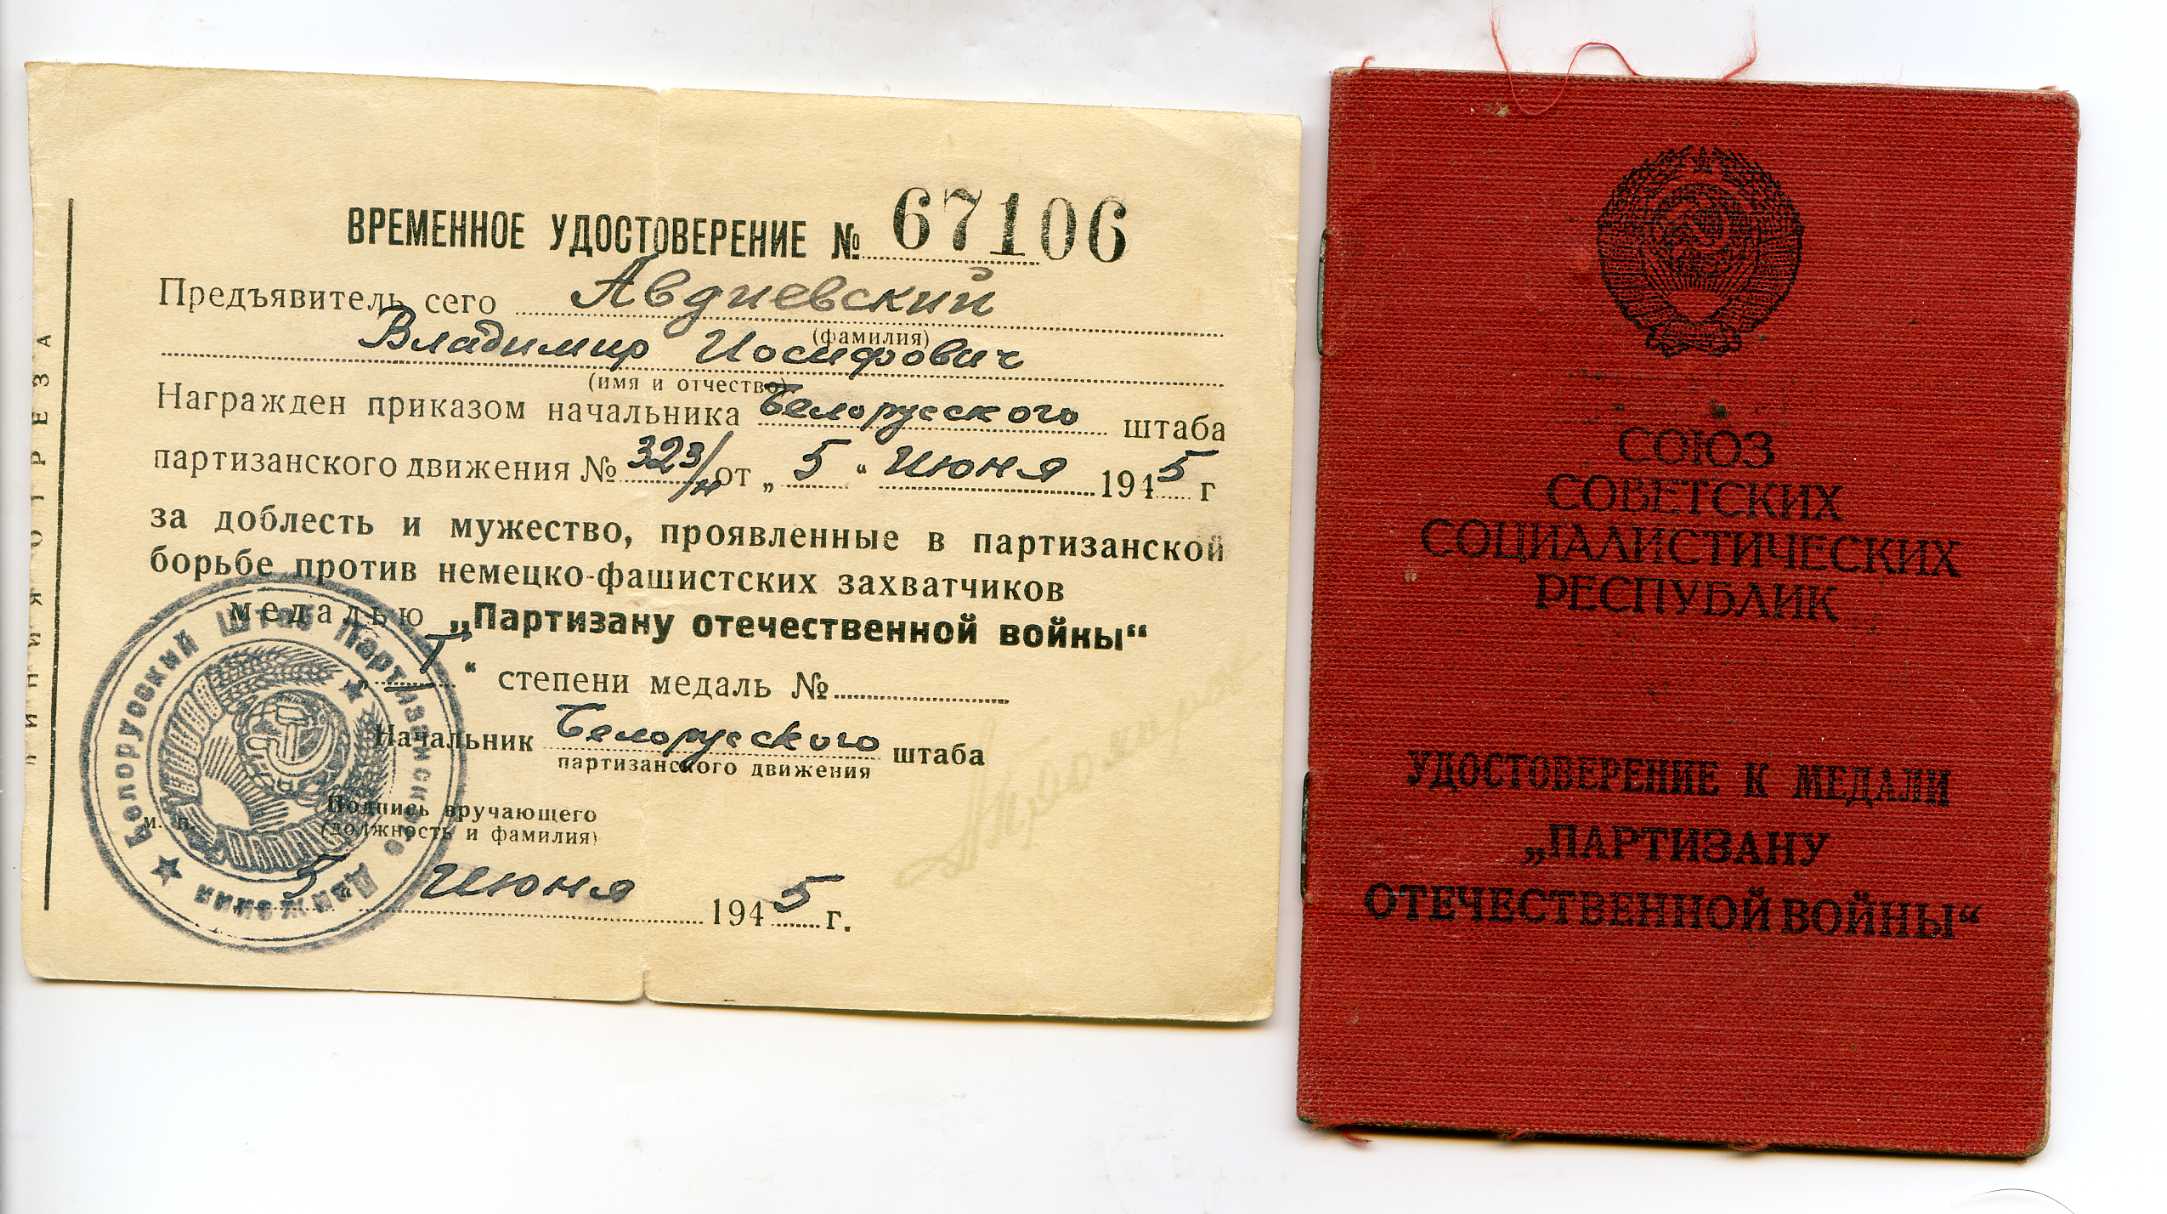 ВРЕМЕННОЕ УДОСТОВЕРЕНИЕ № 67106
Предъявитель сего Авдиевский
(фамилия)
Владимир Иосифович
(имя и отчество)
Награжден приказом начальника Белорусского штаба
партизанского движения № 323/н от „5“ июня 1945 г
за доблесть и мужество, проявленные в партизанской
борьбе против немецко-фашистских захватчиков
медалью „Партизану отечественной войны“
„I“ степени медаль №
Начальник Белорусского штаба
партизанского движения
Подпись вручающего
(должность и фамилия)
м. п.
5 июня 1945 г.
Белорусский Штаб Партизанского Движения
ЛИНИЯ ОТРЕЗА
СОЮЗ
СОВЕТСКИХ
СОЦИАЛИСТИЧЕСКИХ
РЕСПУБЛИК
УДОСТОВЕРЕНИЕ К МЕДАЛИ
„ПАРТИЗАНУ
ОТЕЧЕСТВЕННОЙ ВОЙНЫ“